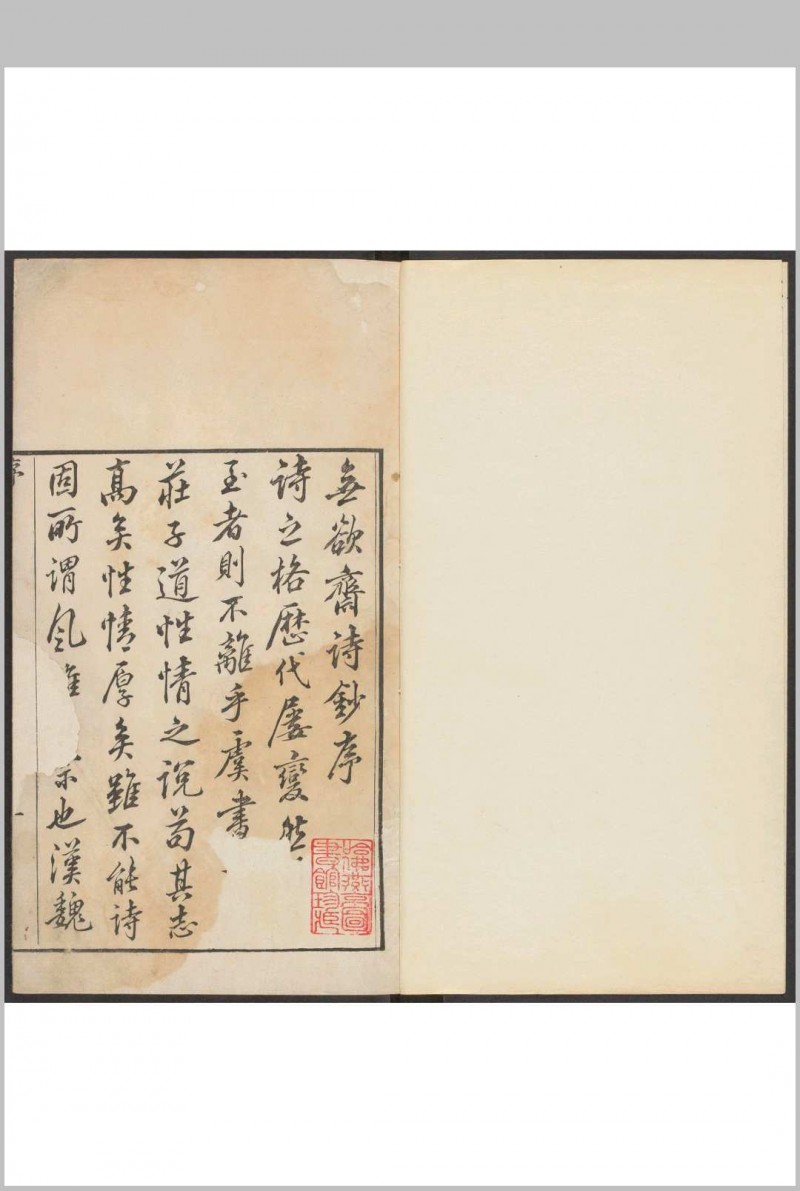 無欲齋詩鈔序
詩之格歷代屢變然
至者則不離乎虞書
莊子道性情之說苟其志
高矣性情厚矣雖不能詩
固所謂風雅也漢魏
序
一
哈佛燕京圖
書館珍藏